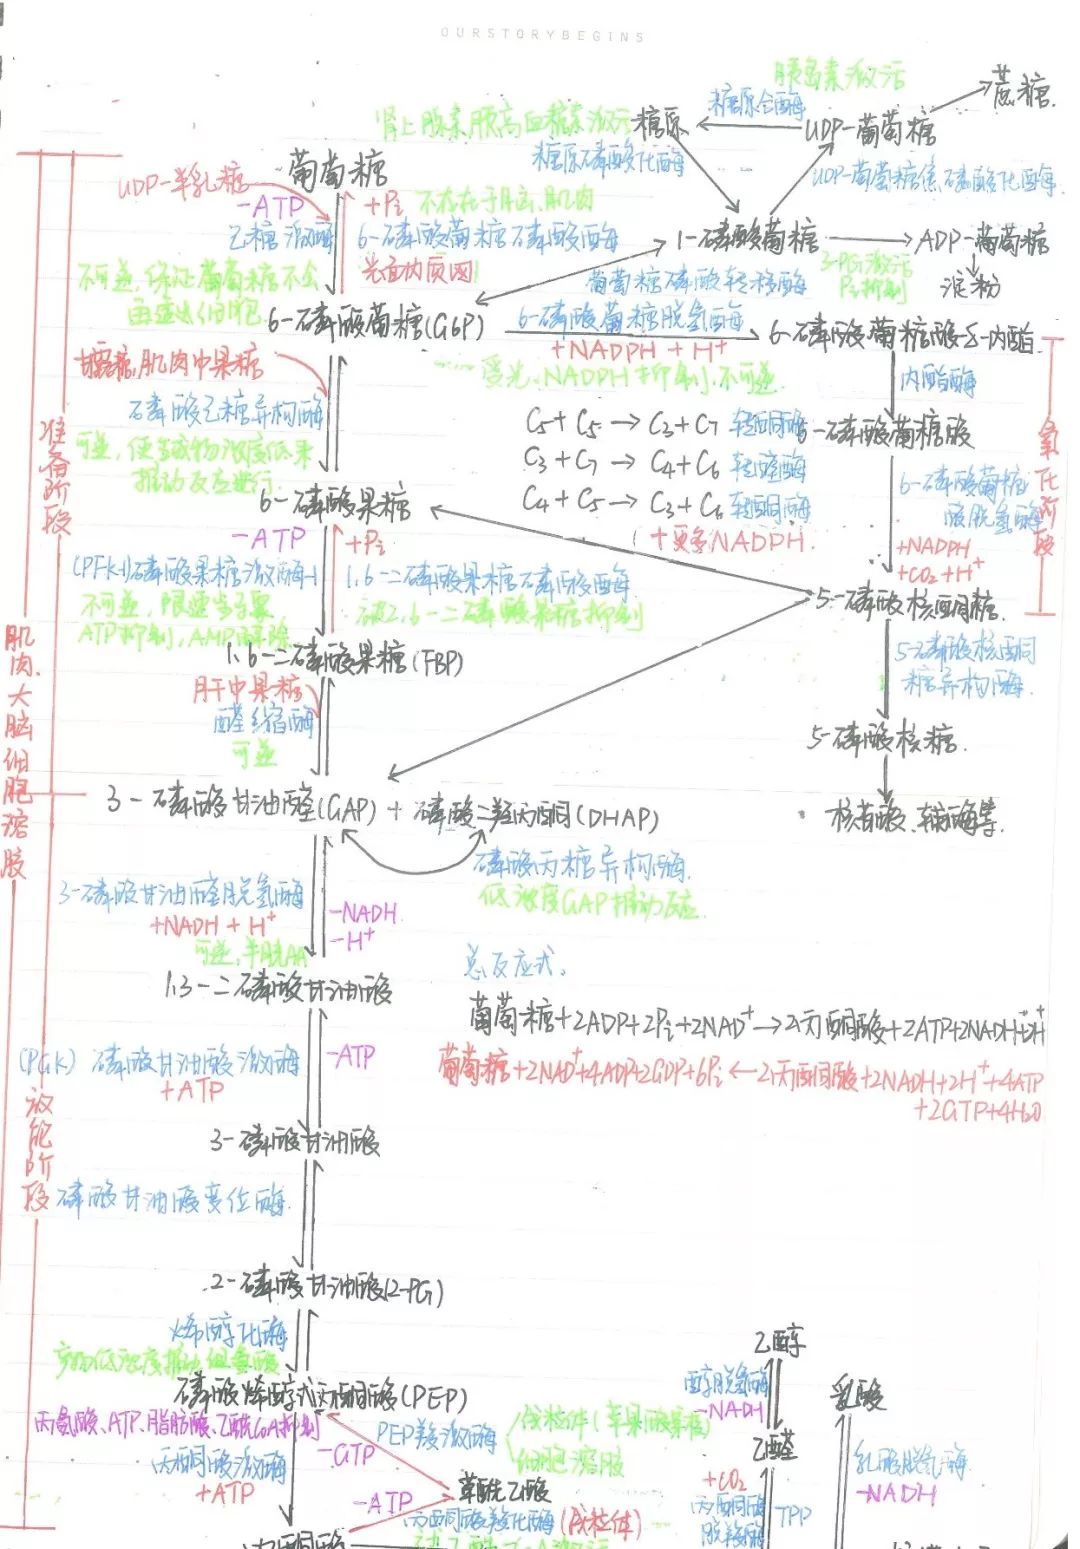 OURSTORYBEGINS
胰岛素激活
蔗糖
糖原合酶
肾上腺素胰高血糖素激活
糖原
UDP-葡萄糖
糖原磷酸化酶
UDP-葡萄糖焦磷酸化酶
葡萄糖
UDP-半乳糖
-ATP
+Pi
不存在于脑、肌肉
己糖激酶
6-磷酸葡萄糖磷酸酶
光面内质网
1-磷酸葡萄糖
ADP-葡萄糖
3-PG激活
Pi抑制
淀粉
不可逆,保证葡萄糖不会
再逸出细胞
葡萄糖磷酸转移酶
6-磷酸葡萄糖(G6P)
6-磷酸葡萄糖脱氢酶
+NADPH + H+
6-磷酸葡萄糖酸-δ-内酯
受光、NADPH抑制,不可逆
内酯酶
甘露糖,肌肉中果糖
磷酸己糖异构酶
可逆,使生成物浓度低来
推动反应进行
C5+C5→C3+C7 转酮酶
C3+C7→C4+C6 转醛酶
C4+C5→C3+C6 转酮酶
+更多NADPH
6-磷酸葡萄糖酸
6-磷酸葡萄糖
酸脱氢酶
+NADPH
+CO2+H+
氧化阶段
准备阶段
6-磷酸果糖
-ATP
+Pi
(PFK-1)磷酸果糖激酶-1
1,6-二磷酸果糖磷酸酶
不可逆,限速步骤
被2,6-二磷酸果糖抑制
ATP抑制,AMP解除
5-磷酸核酮糖
1,6-二磷酸果糖(FBP)
5-磷酸核酮
糖异构酶
肝中果糖
醛缩酶
可逆
5-磷酸核糖
肌肉、大脑细胞溶胶
3-磷酸甘油醛(GAP)+磷酸二羟丙酮(DHAP)
核苷酸、辅酶等
磷酸丙糖异构酶
低浓度GAP推动反应
3-磷酸甘油醛脱氢酶
+NADH + H+
-NADH
-H+
可逆,半胱AA
1,3-二磷酸甘油酸
总反应式
葡萄糖+2ADP+2Pi+2NAD+→2丙酮酸+2ATP+2NADH+2H+
葡萄糖+2NAD+4ADP+2GDP+6Pi←2丙酮酸+2NADH+2H+4ATP
+2GTP+4H2O
(PGK)磷酸甘油酸激酶
+ATP
-ATP
放能阶段
3-磷酸甘油酸
磷酸甘油酸变位酶
2-磷酸甘油酸(2-PG)
烯醇化酶
产物低浓度推动
磷酸烯醇式丙酮酸(PEP)
丙氨酸、ATP、脂肪酸、乙酰CoA抑制
丙酮酸激酶
+ATP
-GTP
PEP羧激酶
线粒体
细胞溶胶
-ATP
草酰乙酸
丙酮酸羧化酶(线粒体)
丙酮酸
乙醇
醇脱氢酶
-NADH
乙醛
+CO2
丙酮酸
脱羧酶
TPP
乳酸
乳酸脱氢酶
-NADH